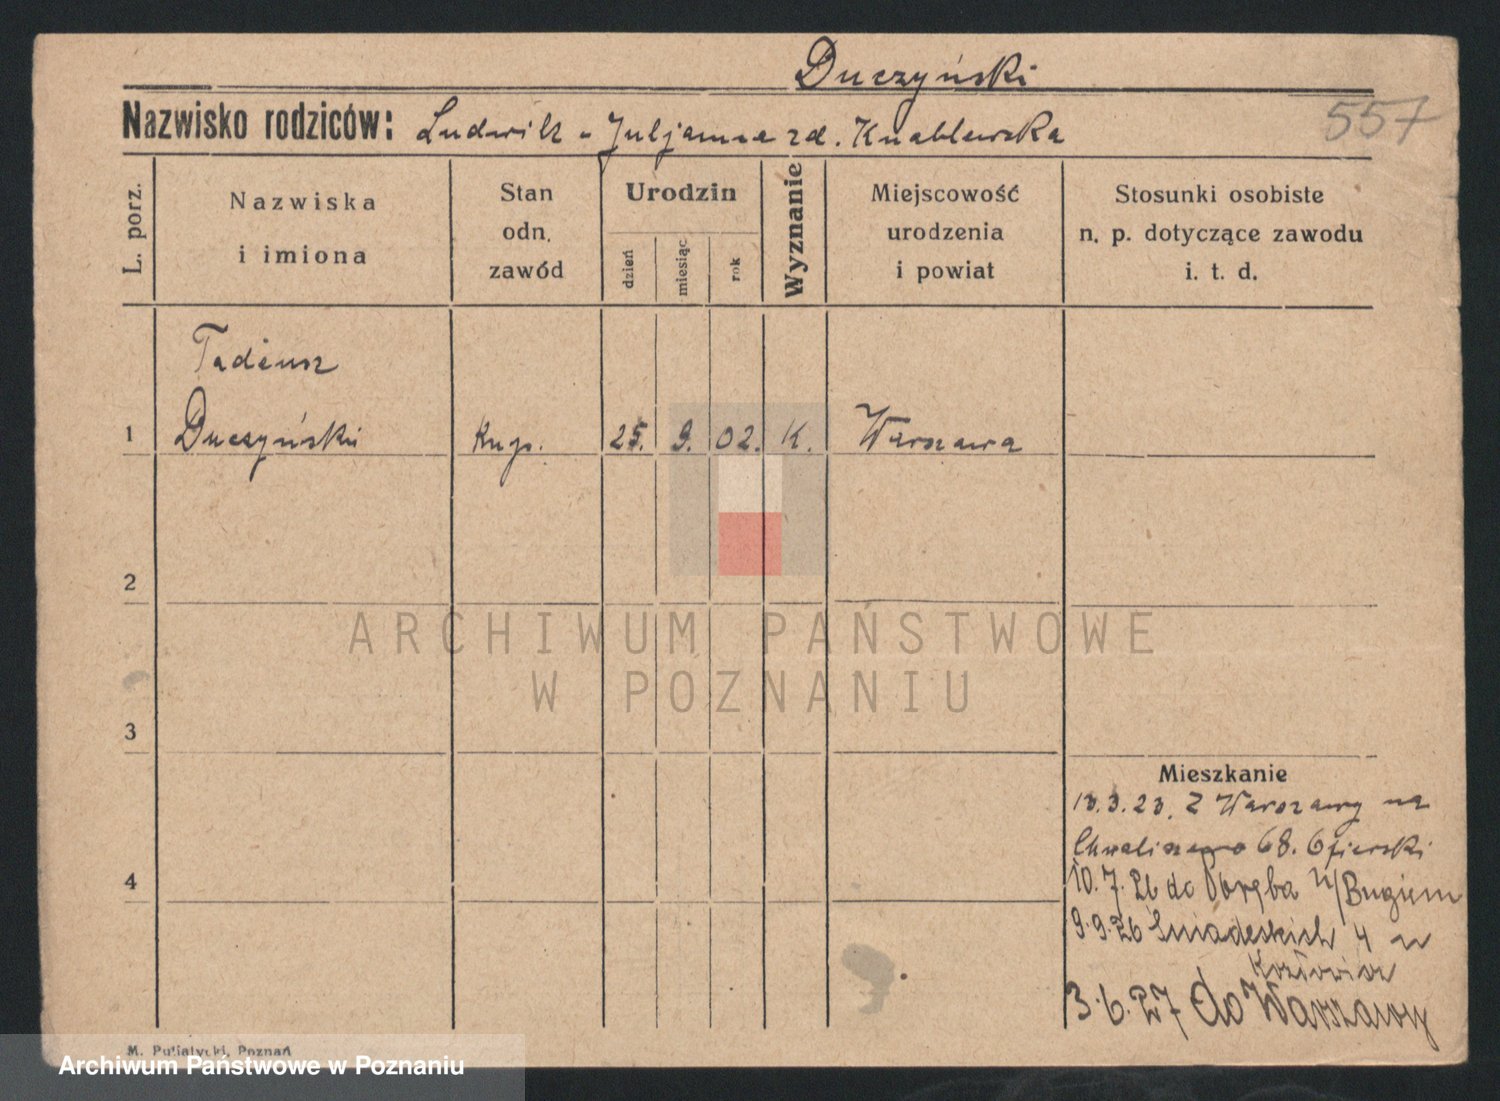 Duczyński
557
Nazwisko rodziców: Ludwik - Juljanna zd. Knablewska
L. porz.
Nazwiska
i imiona
Stan
odn.
zawód
Urodzin
dzień
miesiąc
rok
Wyznanie
Miejscowość
urodzenia
i powiat
Stosunki osobiste
n. p. dotyczące zawodu
i. t. d.
Tadeusz
1 Duczyński 25. 9. 02. K. Warszawa
2
ARCHIWUM PAŃSTWOWE
W POZNANIU
3
Mieszkanie
13.3.23. Z Warszawy na
68.
4
10.7.26 do Poręba n/Bugiem
9.9.26 Śniadeckich 4 u
3.6.27 do Warszawy
M. Putiatycki, Poznań
Archiwum Państwowe w Poznaniu